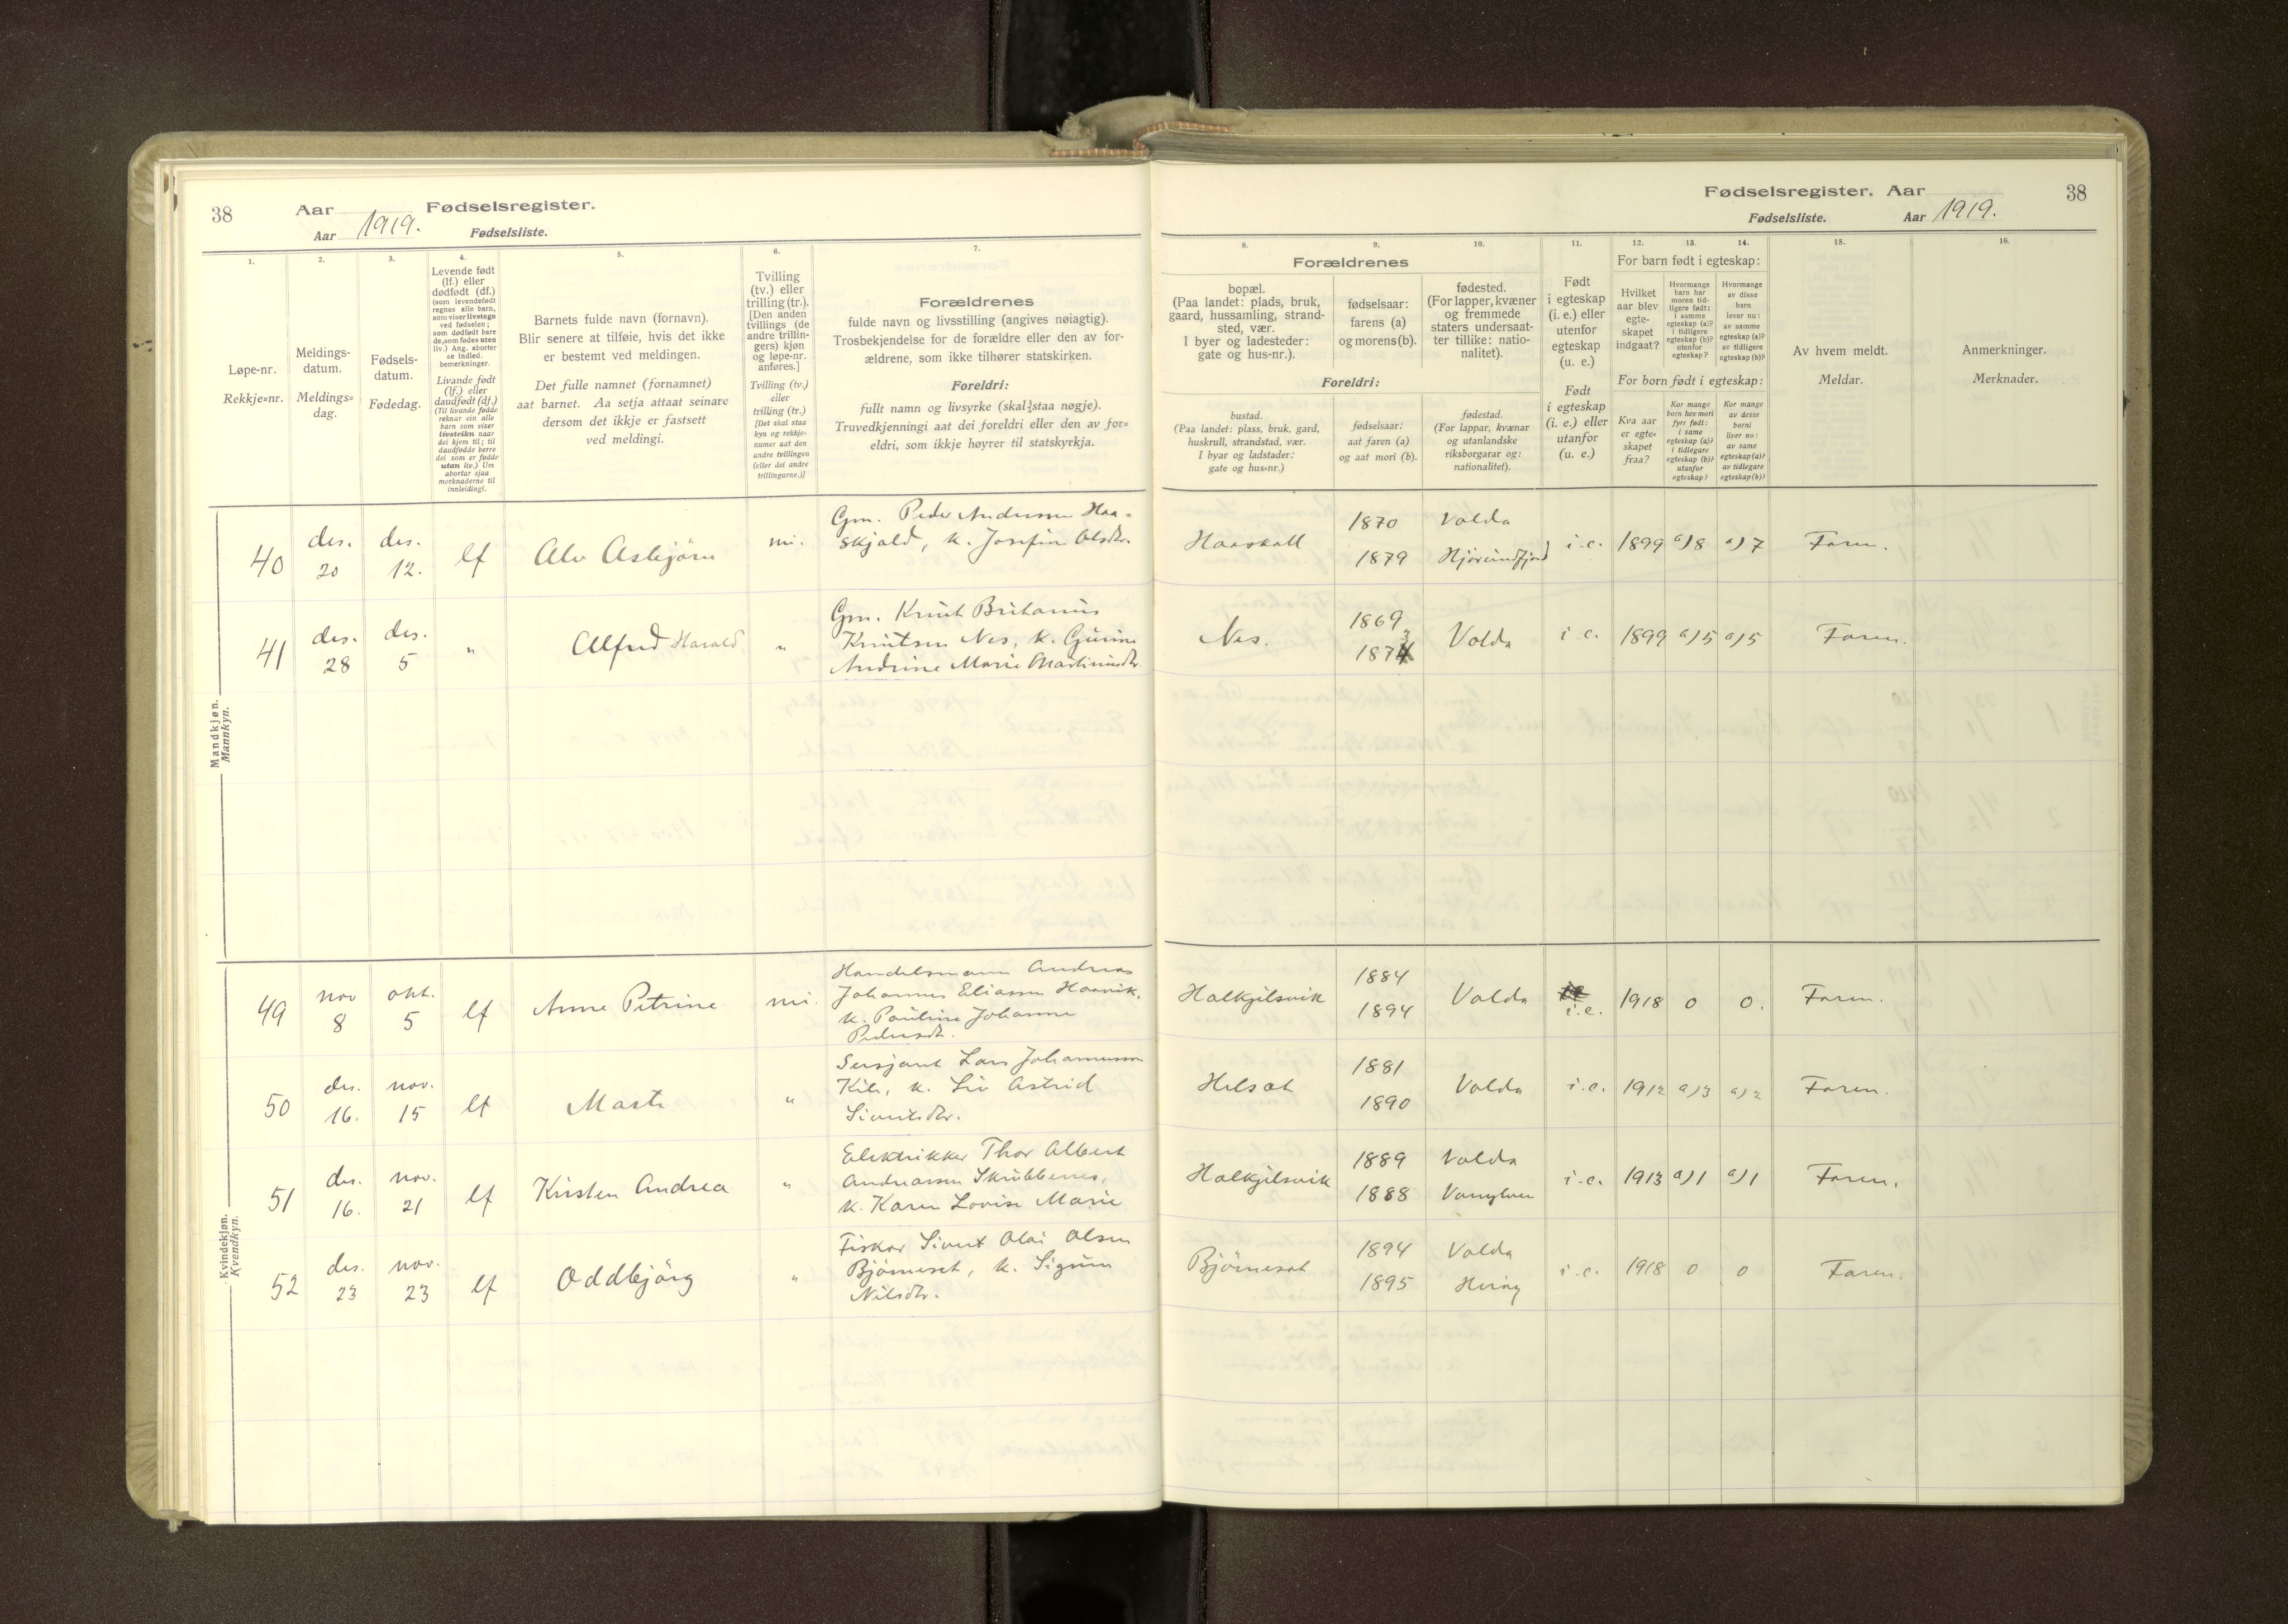 38
Aar
Fødselsregister.
Aar 1919.
Fødselsliste.
1.
Løpe-nr.
Rekkje=nr.
2.
Meldings-
datum.
Meldings=
dag.
3.
Fødsels-
datum.
Fødedag.
4.
Levende født
(lf.) eller
dødfødt (df.)
(som levendefødt
regnes alle barn,
som viser livstegn
ved fødselen;
som dødfødt bare
de, som fødes uten
liv.) Ang. aborter
se indled.
bemerkninger.
Livande født
(lf.) eller
daudfødt (df.)
(Til livande fødde
reknar ein alle
barn som viser
livsteikn naar
dei kjem til; til
daudfødde berre
dei som er fødde
utan liv.) Um
abortar sjaa
merknaderne til
innleidingi.
5.
Barnets fulde navn (fornavn).
Blir senere at tilføie, hvis det ikke
er bestemt ved meldingen.
Det fulle namnet (fornamnet)
aat barnet. Aa setja attaat seinare
dersom det ikkje er fastsett
ved meldingi.
6.
Tvilling
(tv.) eller
trilling (tr.).
[Den anden
tvillings (de
andre trillin-
gers) kjøn
og løpe-nr.
anføres.]
Tvilling (tv.)
eller
trilling (tr.)
[Det skal staa
kyn og rekkje-
numer aat den
andre tvillingen
(eller dei andre
trillingarne.)]
7.
Forældrenes
fulde navn og livsstilling (angives nøiagtig).
Trosbekjendelse for de forældre eller den av for-
ældrene, som ikke tilhører statskirken.
Foreldri:
fullt namn og livsyrke (skal staa nøgje).
Truvedkjenningi aat dei foreldri eller den av for=
eldri, som ikkje høyrer til statskyrkja.
Fødselsregister. Aar
38
Fødselsliste.
Aar 1919.
8.
9.
10.
Forældrenes
bopæl.
(Paa landet: plads, bruk,
gaard, hussamling, strand-
sted, vær.
I byer og ladesteder:
gate og hus-nr.).
fødselsaar:
farens (a)
og morens (b).
fødested.
(For lapper, kvæner
og fremmede
staters undersaat-
ter tillike: natio-
nalitet).
Foreldri:
bustad.
(Paa landet: plass, bruk, gard,
huskrull, strandstad, vær.
I byar og ladstader:
gate og hus=nr.)
fødselsaar:
aat faren (a)
og aat mori (b).
fødestad.
(For lappar, kvænar
og utanlandske
riksborgarar og:
nationalitet).
11.
Født
i egteskap
(i. e.) eller
utenfor
egteskap
(u. e.)
Født
i egteskap
(i. e.) eller
utanfor
(u. e.)
12.
13.
14.
For barn født i egteskap:
Hvilket
aar blev
egte-
skapet
indgaat?
Hvormange
barn har
moren tid-
ligere født:
i samme
egteskap (a)?
i tidligere
egteskap (b)?
utenfor
egteskap?
Hvormange
av disse
barn
lever nu:
av samme
egteskap (a)?
av tidligere
egteskap (b)?
For born født i egteskap:
Kva aar
er egte=
skapet
fraa?
Kor mange
born hev mori
fyrr født:
i same
egteskap (a)?
i tidlegare
egteskap (b)?
utanfor
egteskap?
Kor mange
av desse
borni
liver no:
av same
egteskap (a)?
av tidlegare
egteskap (b)?
15.
Av hvem meldt.
Meldar.
16.
Anmerkninger.
Merknader.
Mandkjøn.
Mannkyn.
40
des.
20
des.
12.
lf
Alv Asbjörn
mi.
Gm. Peder Andersen Haa=
skjold, k. Josefine Olsdtr.
Haaskoll
1870
1879
Volda
Hjörundfjord
i.e.
1899
a)8
a)7
Faren.
41
des.
28
des.
5
"
Alfred Harald
"
Gm. Knut Britanius
Knutsen Nes, k. Gurine
Andrine Marie Martinusdtr.
Nes.
1869
1873
Volda
i.e.
1899
a)5
a)5
Faren.
Kvindekjøn.
Kvendkyn.
49
nov
8
okt.
5
lf
Anne Petrine
mi.
Handelsmann Andreas
Johannes Eliassen Haavik,
k. Pauline Johanne
Pedersdt.
Halkjelsvik
1884
1894
Volda
i.e.
1918
0
0.
Faren.
50
des.
16.
nov.
15
lf
Marta
"
Sersjant Lars Johannessen
Kile, k. Liv Astrid
Sivertsdtr.
Helsæt
1881
1890
Volda
i.e.
1912
a)3
a)2
Faren.
51
des.
16.
nov.
21
lf
Kirsten Andrea
"
Elektrikker Thor Albert
Andreassen Skrubbenes,
k. Karen Lovise Marie
Halkjelsvik
1889
1888
Volda
Vanylven
i.e.
1913
a)1
a)1
Faren.
52
des.
23
nov.
23
lf
Oddbjörg
"
Fisker Sivert Olai Olsen
Björneset, k. Sigrun
Nilsdtr.
Björneset
1894
1895
Volda
i.e.
1918
0
0
Faren.